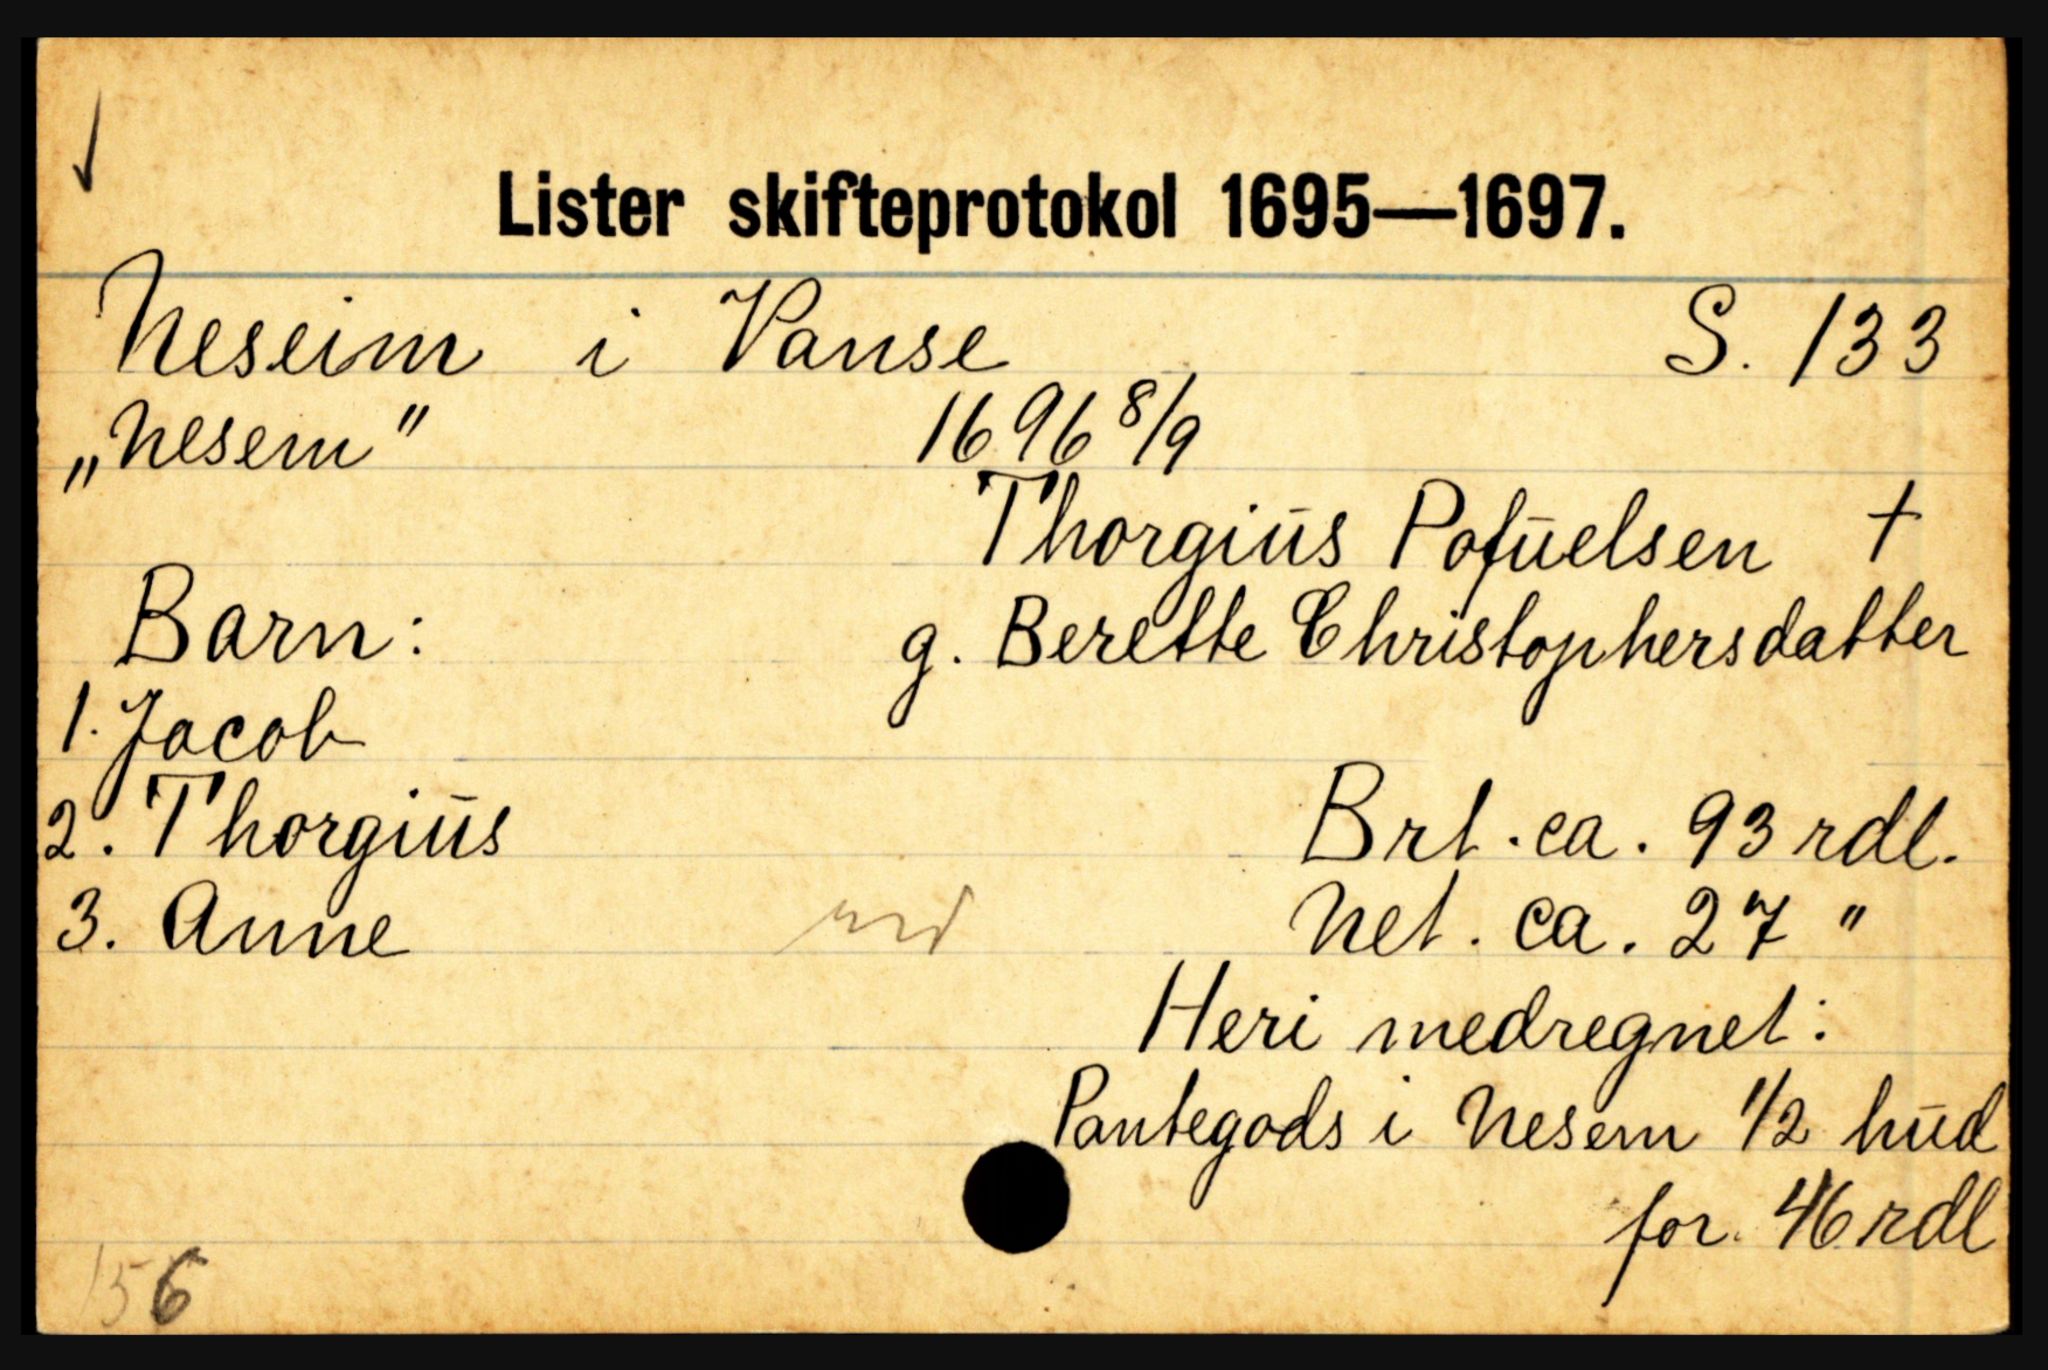 Lister skifteprotokol 1695—1697.
Neseim i Vanse S. 133
„Nesem" 1696 8/9
Thorgiūs Pofūelsen †
Barn: g. Berette Christophersdatter
1. Jacob
2. Thorgiūs Brt. ca. 93 rdl.
3. Anne Net. ca. 27 "
Heri medregnet:
Pantegods i Nesem 1/2 hūd
for 46 rdl
156